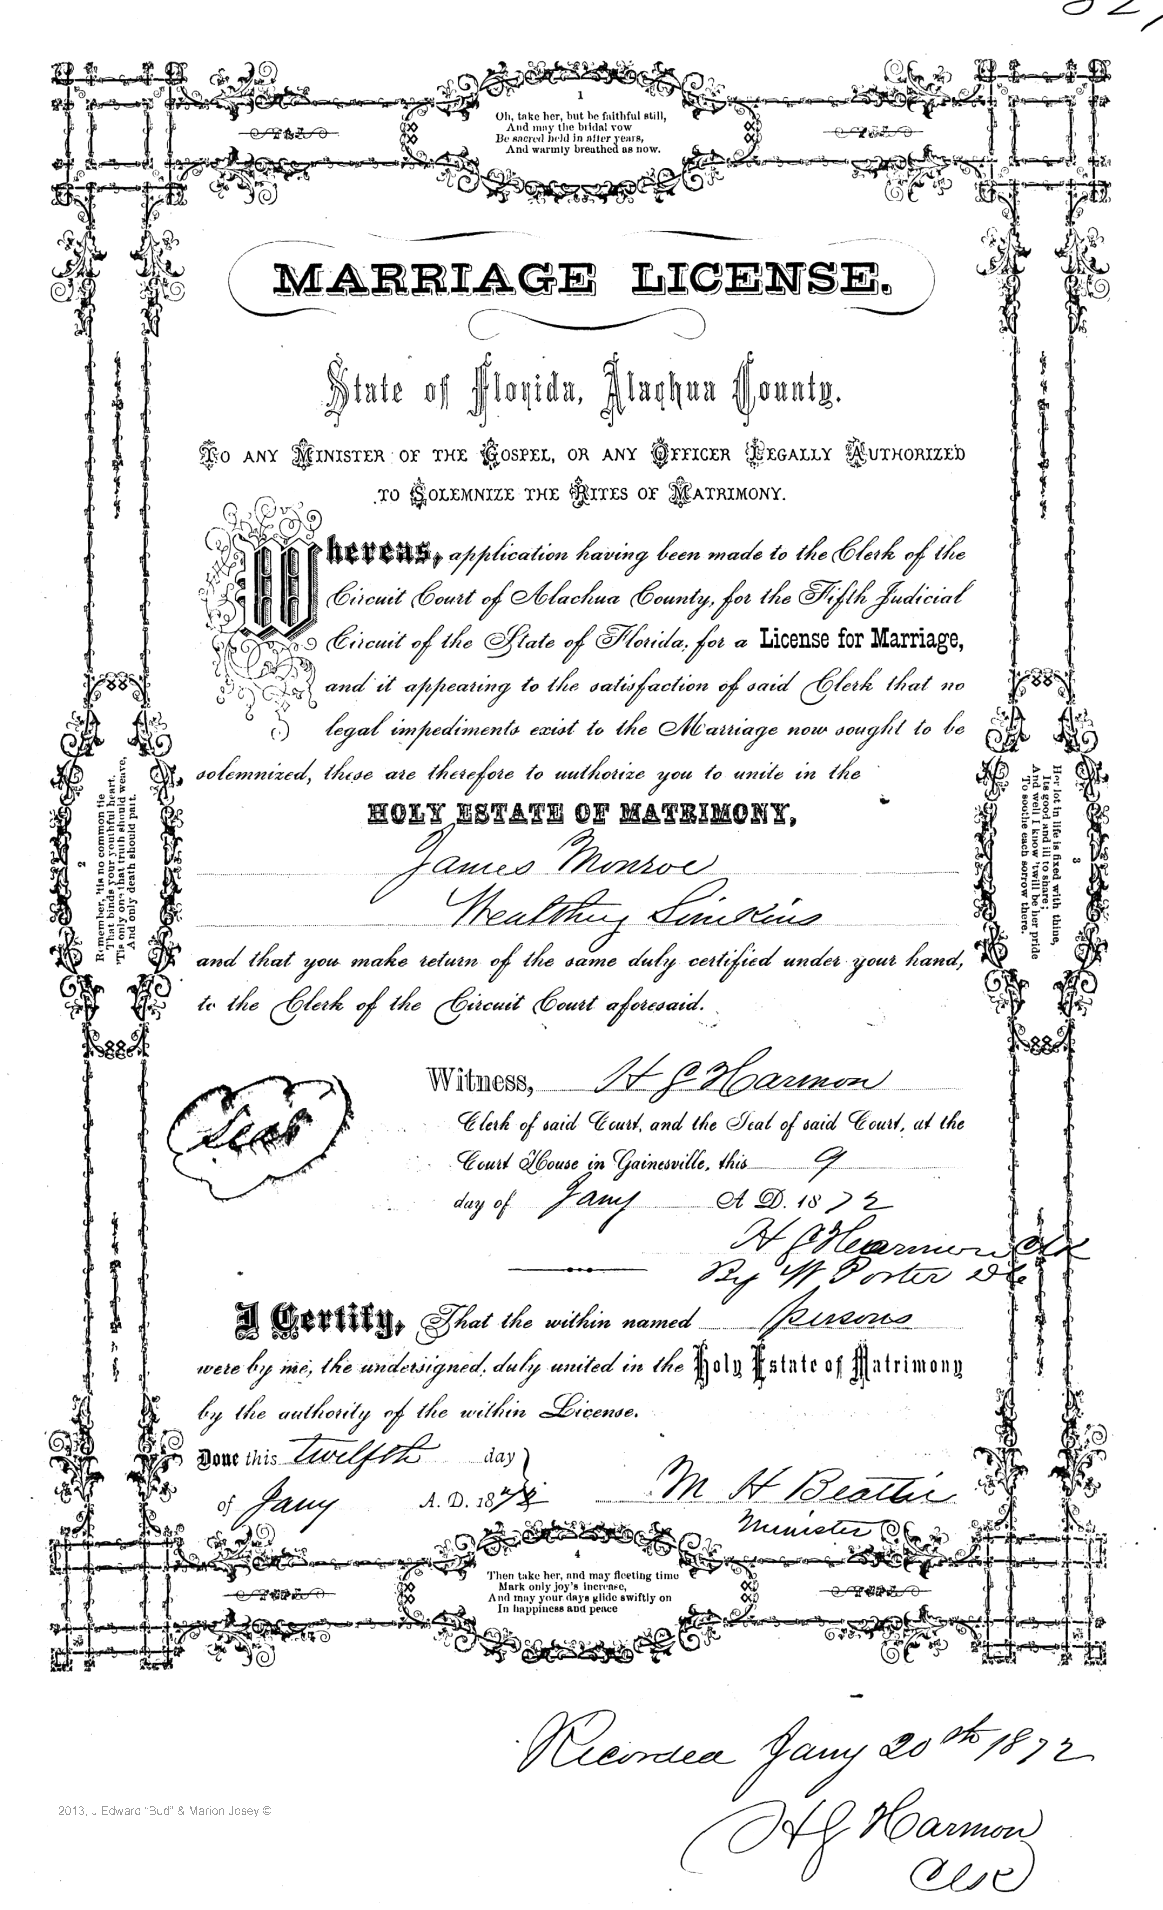 1
Oh, take her, but be faithful still,
And may the bridal vow
Be sacred held in after years,
And warmly breathed as now.
MARRIAGE LICENSE.
State of Florida, Alachua County.
TO ANY MINISTER OF THE GOSPEL, OR ANY OFFICER LEGALLY AUTHORIZED
TO SOLEMNIZE THE RITES OF MATRIMONY.
Whereas, application having been made to the Clerk of the
Circuit Court of Alachua County, for the Fifth Judicial
Circuit of the State of Florida, for a License for Marriage,
and it appearing to the satisfaction of said Clerk that no
legal impediments exist to the Marriage now sought to be
solemnized, these are therefore to authorize you to unite in the
HOLY ESTATE OF MATRIMONY,
James Monroe
Wealthy Simkins
and that you make return of the same duly certified under your hand,
to the Clerk of the Circuit Court aforesaid.
2
Remember, 'tis no common tie
That binds your youthful heart,
'Tis only one that truth should weave,
And only death should part.
3
Her lot in life is fixed with thine,
Its good and ill to share;
And well I know 'twill be her pride
To soothe each sorrow there.
Seal
Witness, H G Harmon
Clerk of said Court, and the Seal of said Court, at the
Court House in Gainesville, this 9
day of Jany A. D. 1872
H G Harmon Clk
By W Porter DC
I Certify, That the within named persons
were by me, the undersigned, duly united in the Holy Estate of Matrimony
by the authority of the within License.
Done this twelfth day
of Jany A. D. 1872
M H Beattie
Minister
4
Then take her, and may fleeting time
Mark only joy's increase,
And may your days glide swiftly on
In happiness and peace
Recorded Jany 20th 1872
H G Harmon
Clk
2013, J Edward "Bud" & Marion Josey ©